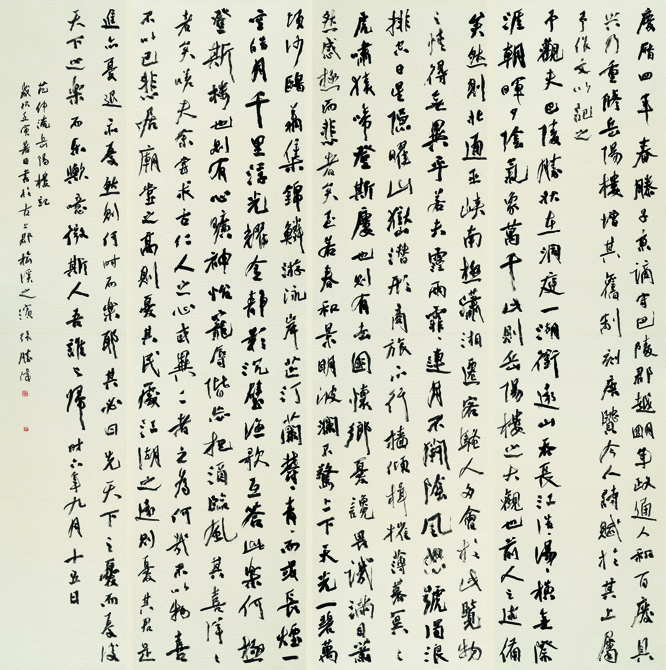 慶曆四年春滕子京謫守巴陵郡越明年政通人和百廢具
興乃重修岳陽樓增其舊制刻唐賢今人詩賦於其上屬
予作文以記之
予觀夫巴陵勝狀在洞庭一湖銜遠山吞長江浩湯々橫無際
涯朝暉夕陰氣象萬千此則岳陽樓之大觀也前人之述備
矣然則北通巫峽南極瀟湘遷客騷人多會於此覽物
之情得無異乎若夫霪雨霏々連月不開陰風怒號濁浪
排空日星隱曜山嶽潛形商旅不行檣傾楫摧薄暮冥々
虎嘯猿啼登斯樓也則有去國懷鄉憂讒畏譏滿目蕭
然感極而悲者矣至若春和景明波瀾不驚上下天光一碧萬
頃沙鷗翔集錦鱗游泳岸芷汀蘭鬱々青々而或長煙一
空皓月千里浮光耀金靜影沉璧漁歌互答此樂何極
登斯樓也則有心曠神怡寵辱偕忘把酒臨風其喜洋々
者矣嗟夫余嘗求古仁人之心或異二者之為何哉不以物喜
不以己悲居廟堂之高則憂其民處江湖之遠則憂其君是
進亦憂退亦憂然則何時而樂耶其必曰先天下之憂而憂後
天下之樂而樂歟噫微斯人吾誰與歸 時六年九月十五日
范仲淹岳陽樓記
歲次壬寅日書於古上郡榆溪之濱 張勝